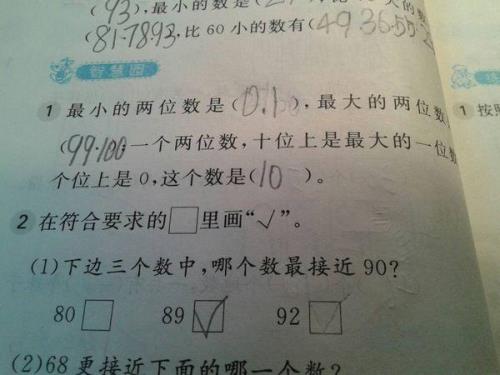 (93),最小的数是(2
(81.78.93),比 60 小的数有(49.36.55
智慧园
1 最小的两位数是(10.100),最大的两位数
(99.100;一个两位数,十位上是最大的一位数
个位上是0,这个数是(10)。
1 按照
2 在符合要求的□里画“√”。
(1)下边三个数中,哪个数最接近 90?
80□ 89☑ 92□
(2)68 更接近下面的哪一个数?